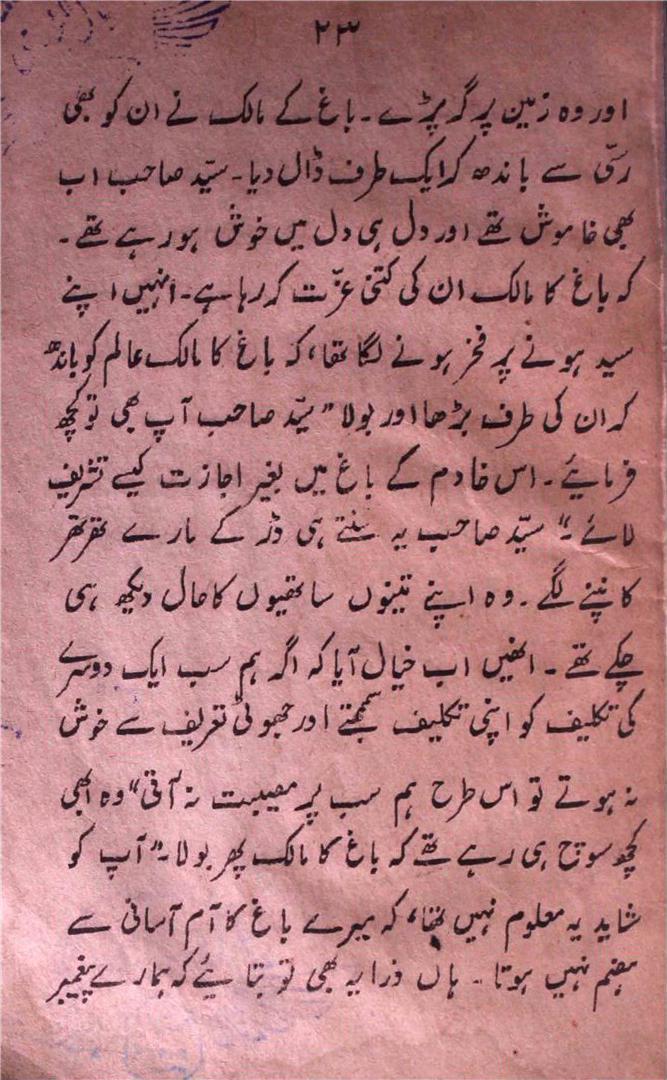 ۲۳
اور وہ زمین پر گر پڑے۔ باغ کے مالک نے ان کو بھی
رسّی سے باندھ کر ایک طرف ڈال دیا۔ سیّد صاحب اب
بھی خاموش تھے اور دل ہی دل میں خوش ہو رہے تھے۔
کہ باغ کا مالک ان کی کتنی عزّت کر رہا ہے۔ انہیں اپنے
سید ہونے پر فخر ہونے لگا تھا، کہ باغ کا مالک عالم کو باندھ
کر ان کی طرف بڑھا اور بولا "سیّد صاحب آپ بھی تو کچھ
فرمائیے۔ اس خادم کے باغ میں بغیر اجازت کیسے تشریف
لائے۔" سیّد صاحب یہ سنتے ہی ڈر کے مارے تھر تھر
کانپنے لگے۔ وہ اپنے تینوں ساتھیوں کا حال دیکھ ہی
چکے تھے۔ انھیں اب خیال آیا کہ اگر ہم سب ایک دوسرے
کی تکلیف کو اپنی تکلیف سمجھتے اور جھوٹی تعریف سے خوش
نہ ہوتے تو اس طرح ہم سب پر مصیبت نہ آتی" وہ ابھی
کچھ سوچ ہی رہے تھے کہ باغ کا مالک پھر بولا۔" آپ کو
شاید یہ معلوم نہیں تھا، کہ میرے باغ کا آم آسانی سے
ہضم نہیں ہوتا۔ ہاں ذرا یہ بھی تو بتائیے کہ ہمارے پیغمبر